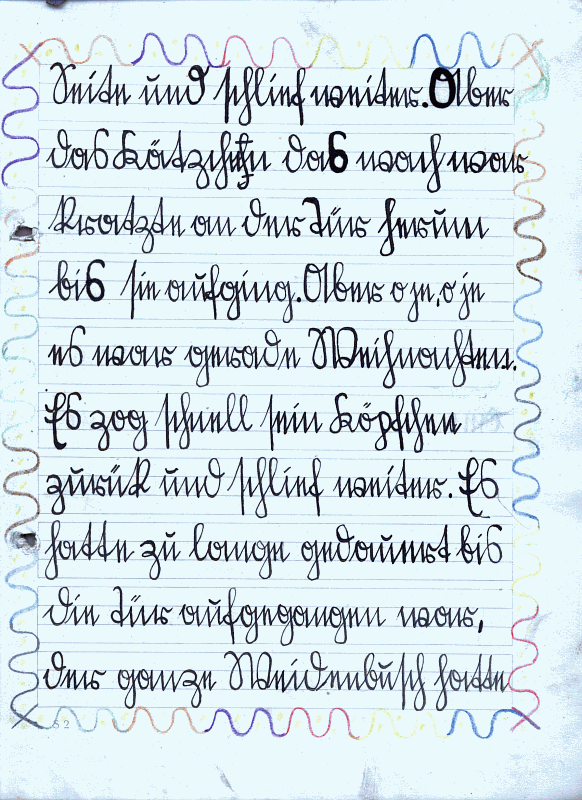 Seite und schlief weiter. Aber
das Kätzchen das wach war
kratzte an der Tür herum
bis sie aufging. Aber o je, o je
es war gerade Weihnachten.
Es zog schnell sein Köpfchen
zurük und schlief weiter. Es
hatte zu lange gedauert bis
die Tür aufgegangen war,
der ganze Weidenbusch hatte
52